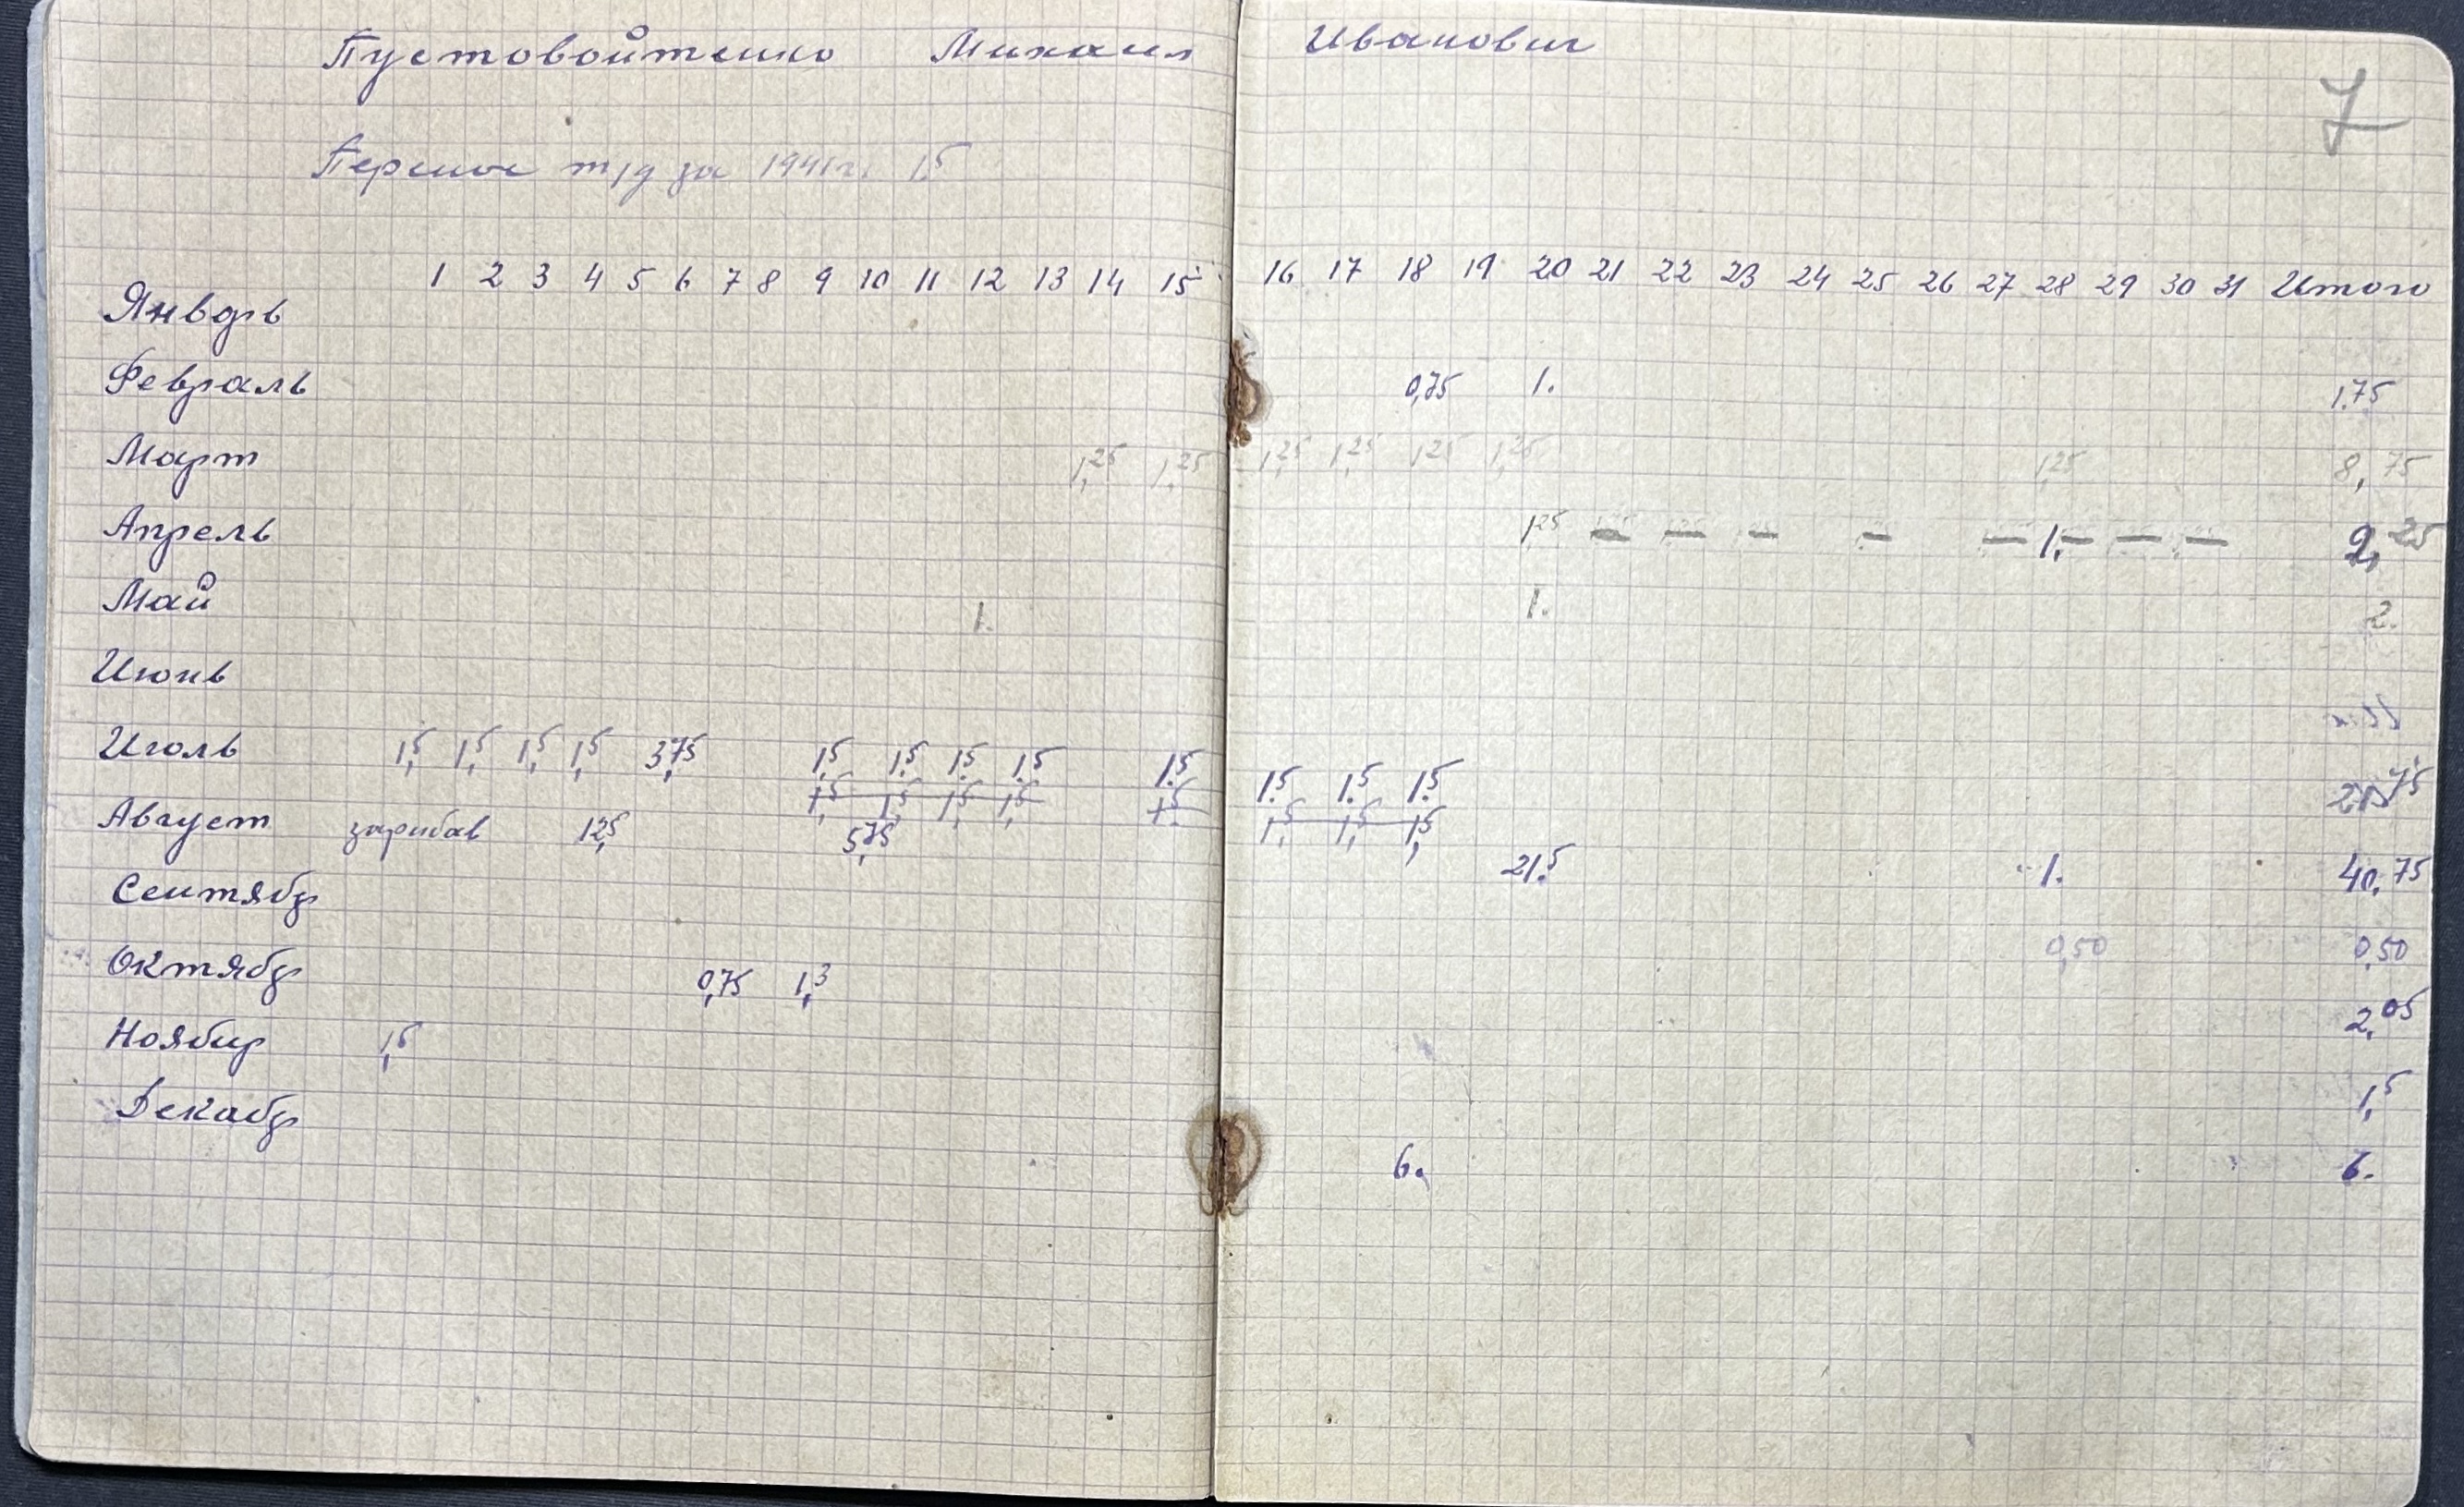 Пустовойтенко Михаил Иванович
7
Перенос т/д за 1941 г. 1,5
1 2 3 4 5 6 7 8 9 10 11 12 13 14 15 16 17 18 19 20 21 22 23 24 25 26 27 28 29 30 31 Итого
Январь
Февраль 0,75 1. 1.75
Март 1,25 1,25 1,25 1,25 1,25 1,25 1,25 8,75
Апрель 1,25 — — — — — 1. — — — 2,25
Май 1. 1. 2.
Июнь
Июль 1,5 1,5 1,5 1,5 3,75 1,5 1,5 1,5 1,5 1.5 1.5 1.5 1.5
1,5 1,5 1,5 1,5 1,5 1,5 1,5 1,5
Август 12,5 5,75 21.5 1. 40,75
Сентябр 0,50 0,50
Октябр 0,75 1,3 2,05
Ноябир 1,5 1,5
Декабр 6. 6.